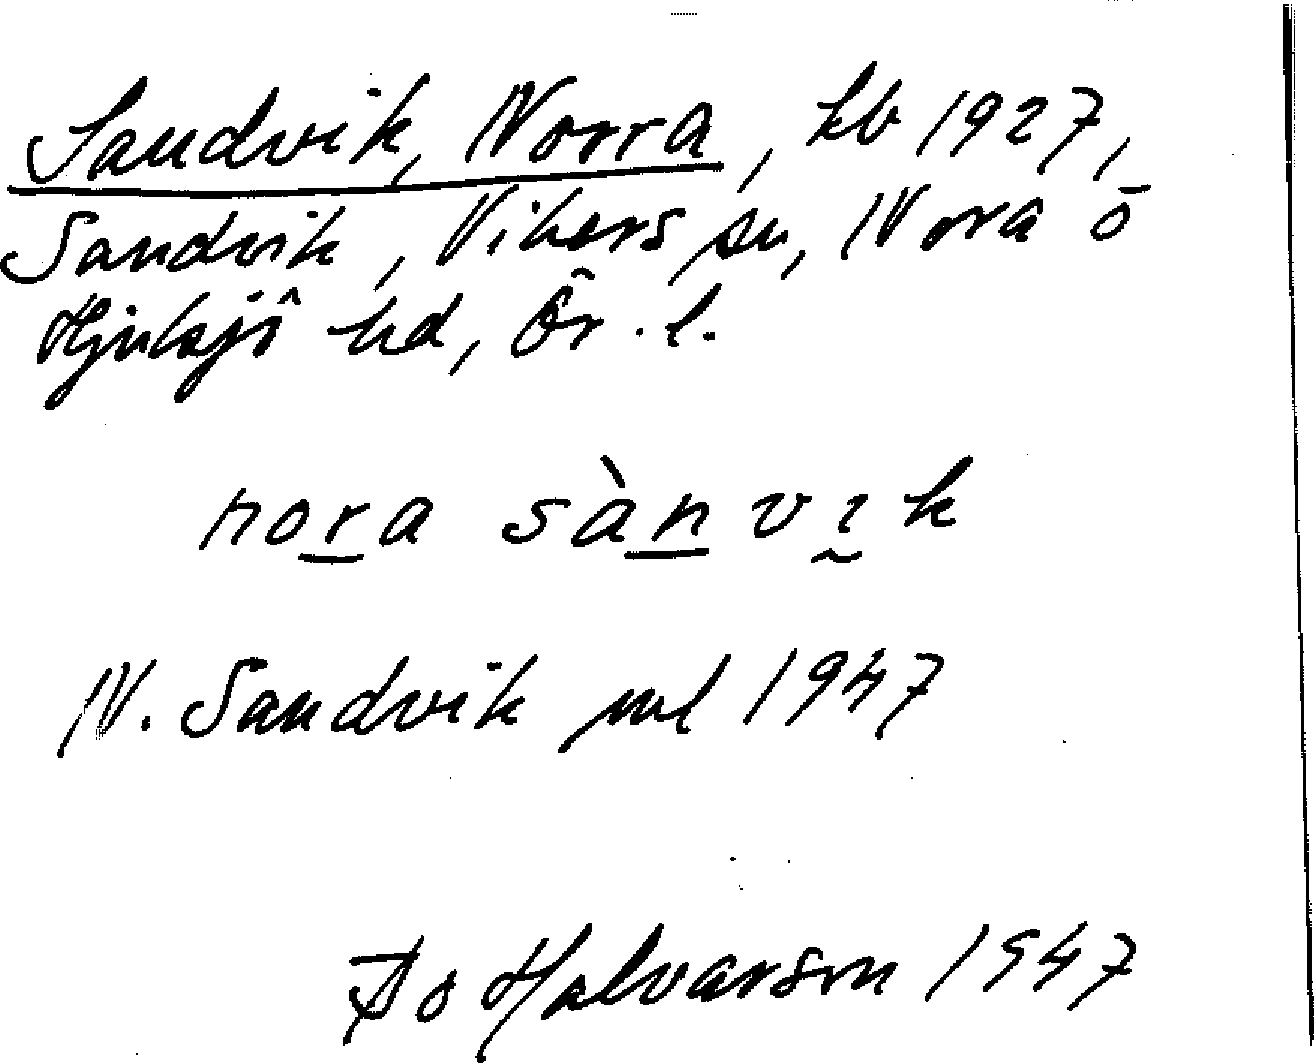 Sandvik, Norra, hb 1927,
Sandvik, Vikers sn, Nora o
Hjulsjö hd, Ör. l.
nora sànvık
N. Sandvik ml 1947
Do Halvarson 1947